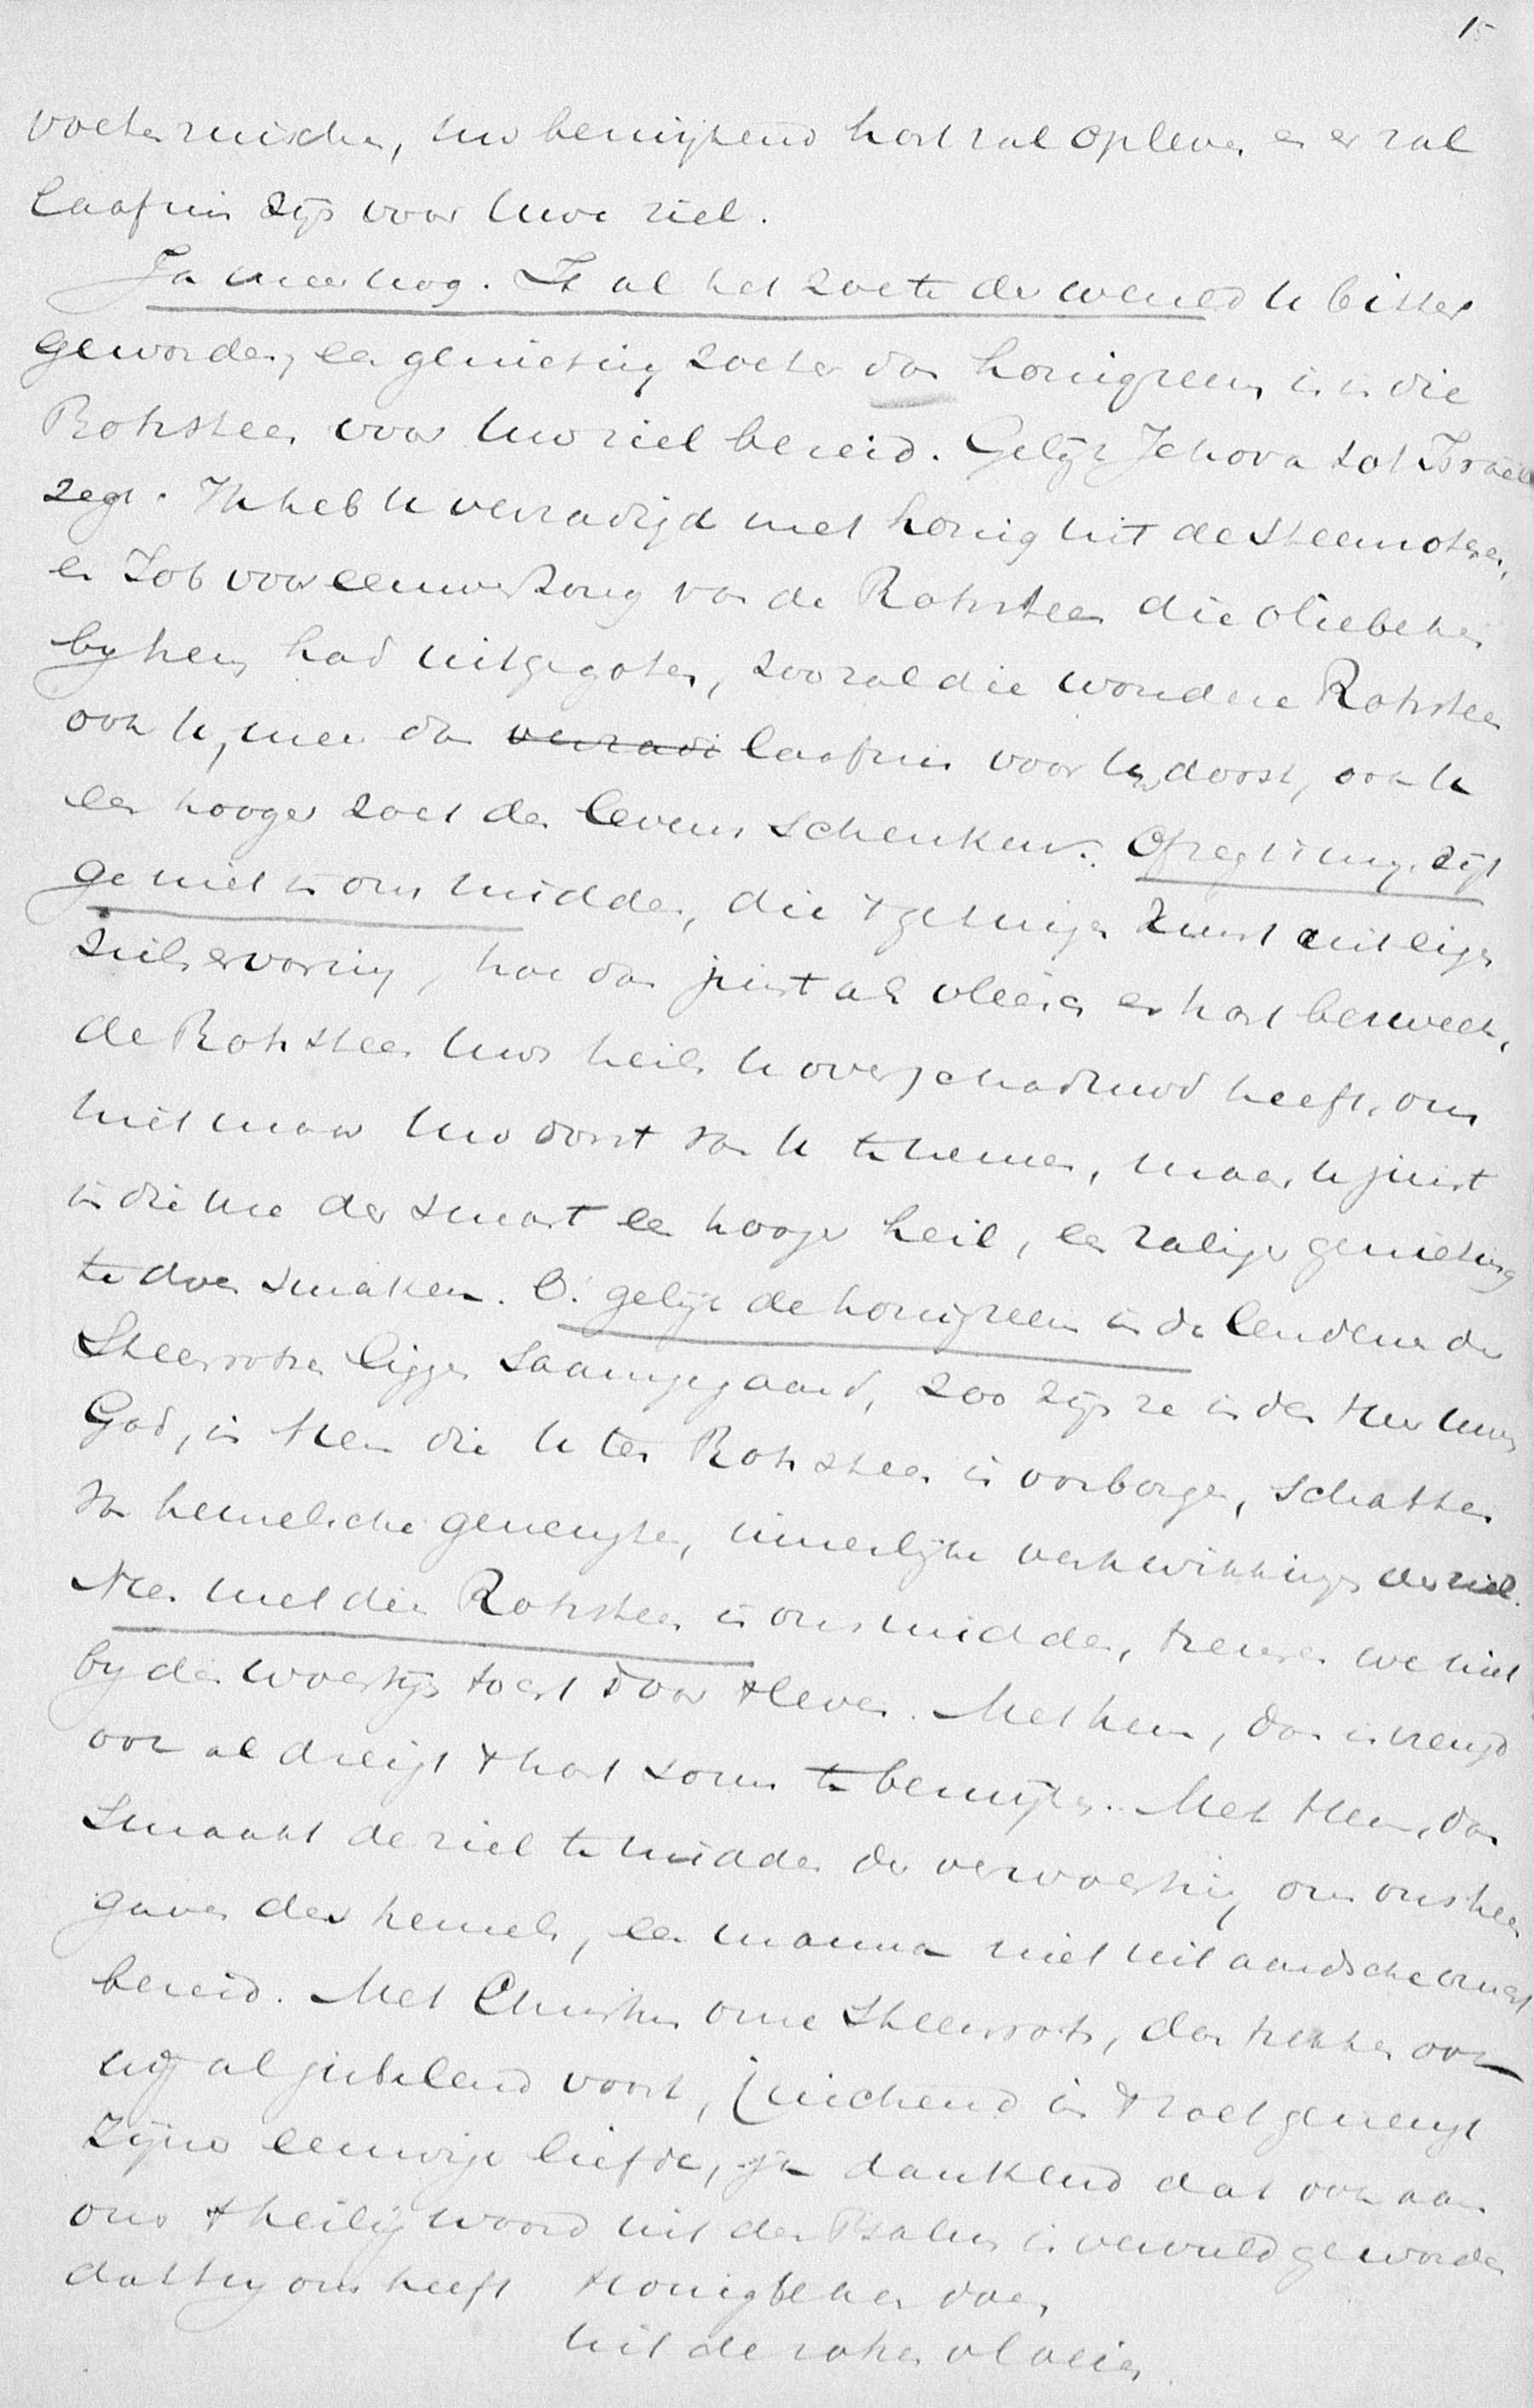 15
voelen ruischen, uw bezwijkend hart zal opleven en er zal
laafnis zijn voor Uwe ziel.
Ja meer nog. Is al het zoete der wereld U bitter
geworden, een genieting zoeter dan honigzeem is in die
Rotssteen voor Uw ziel bereid. Gelijk Jehova tot Israël
zegt. Ik heb U verzadigd met honig uit de steenrotsen,
en Job voor eeuwen zong van de Rotssteen die oliebeken
by hem had uitgegoten, zoo zal die wondere Rotssteen
ook U, meer dan verzadi laafnis voor Uw dorst, ook U
een hooger zoet des levens schenken. Of zegt my, zijt
ge niet in ons midden, die 't getuigen kunt uit eigen
zielservaring, hoe dan juist als vleesch en hart bezweek,
de Rotssteen Uws heils U overschaduwd heeft, om
niet maar Uw dorst van U te nemen, maar U juist
in die ure der smart een hooger heil, een zaliger genieting
te doen smaken. O! gelijk de honigzeem in de lendenen der
Steenrotsen liggen saamgegaard, zoo zijn ze in den Heer Uwen
God, in Hem die U ten Rotssteen is verborgen, schatten
van hemelsche geneugten, innerlijke verkwikkingen der ziel.
Neen met dien Rotssteen in ons midden, treuren we niet
by den woestijntocht door 't leven. Met hem, dan is vreugd
ook al dreigt 't hart soms te bezwijken. Met Hem, dan
smaakt de ziel te midden der verwoesting om ons heen
gaven des hemels, een manna niet uit aardsche vrucht
bereid. Met Christus onze Steenrots, dan trekken ook
wij al jubelend voort, juichend in 't zoet geneugt
Zijner eeuwige liefde, ja dankend dat ook aan
ons 't heilig woord uit den Psalm is vervuld geworden
dat hy ons heeft Honigbeken doen
uit de rotsen vloeien.